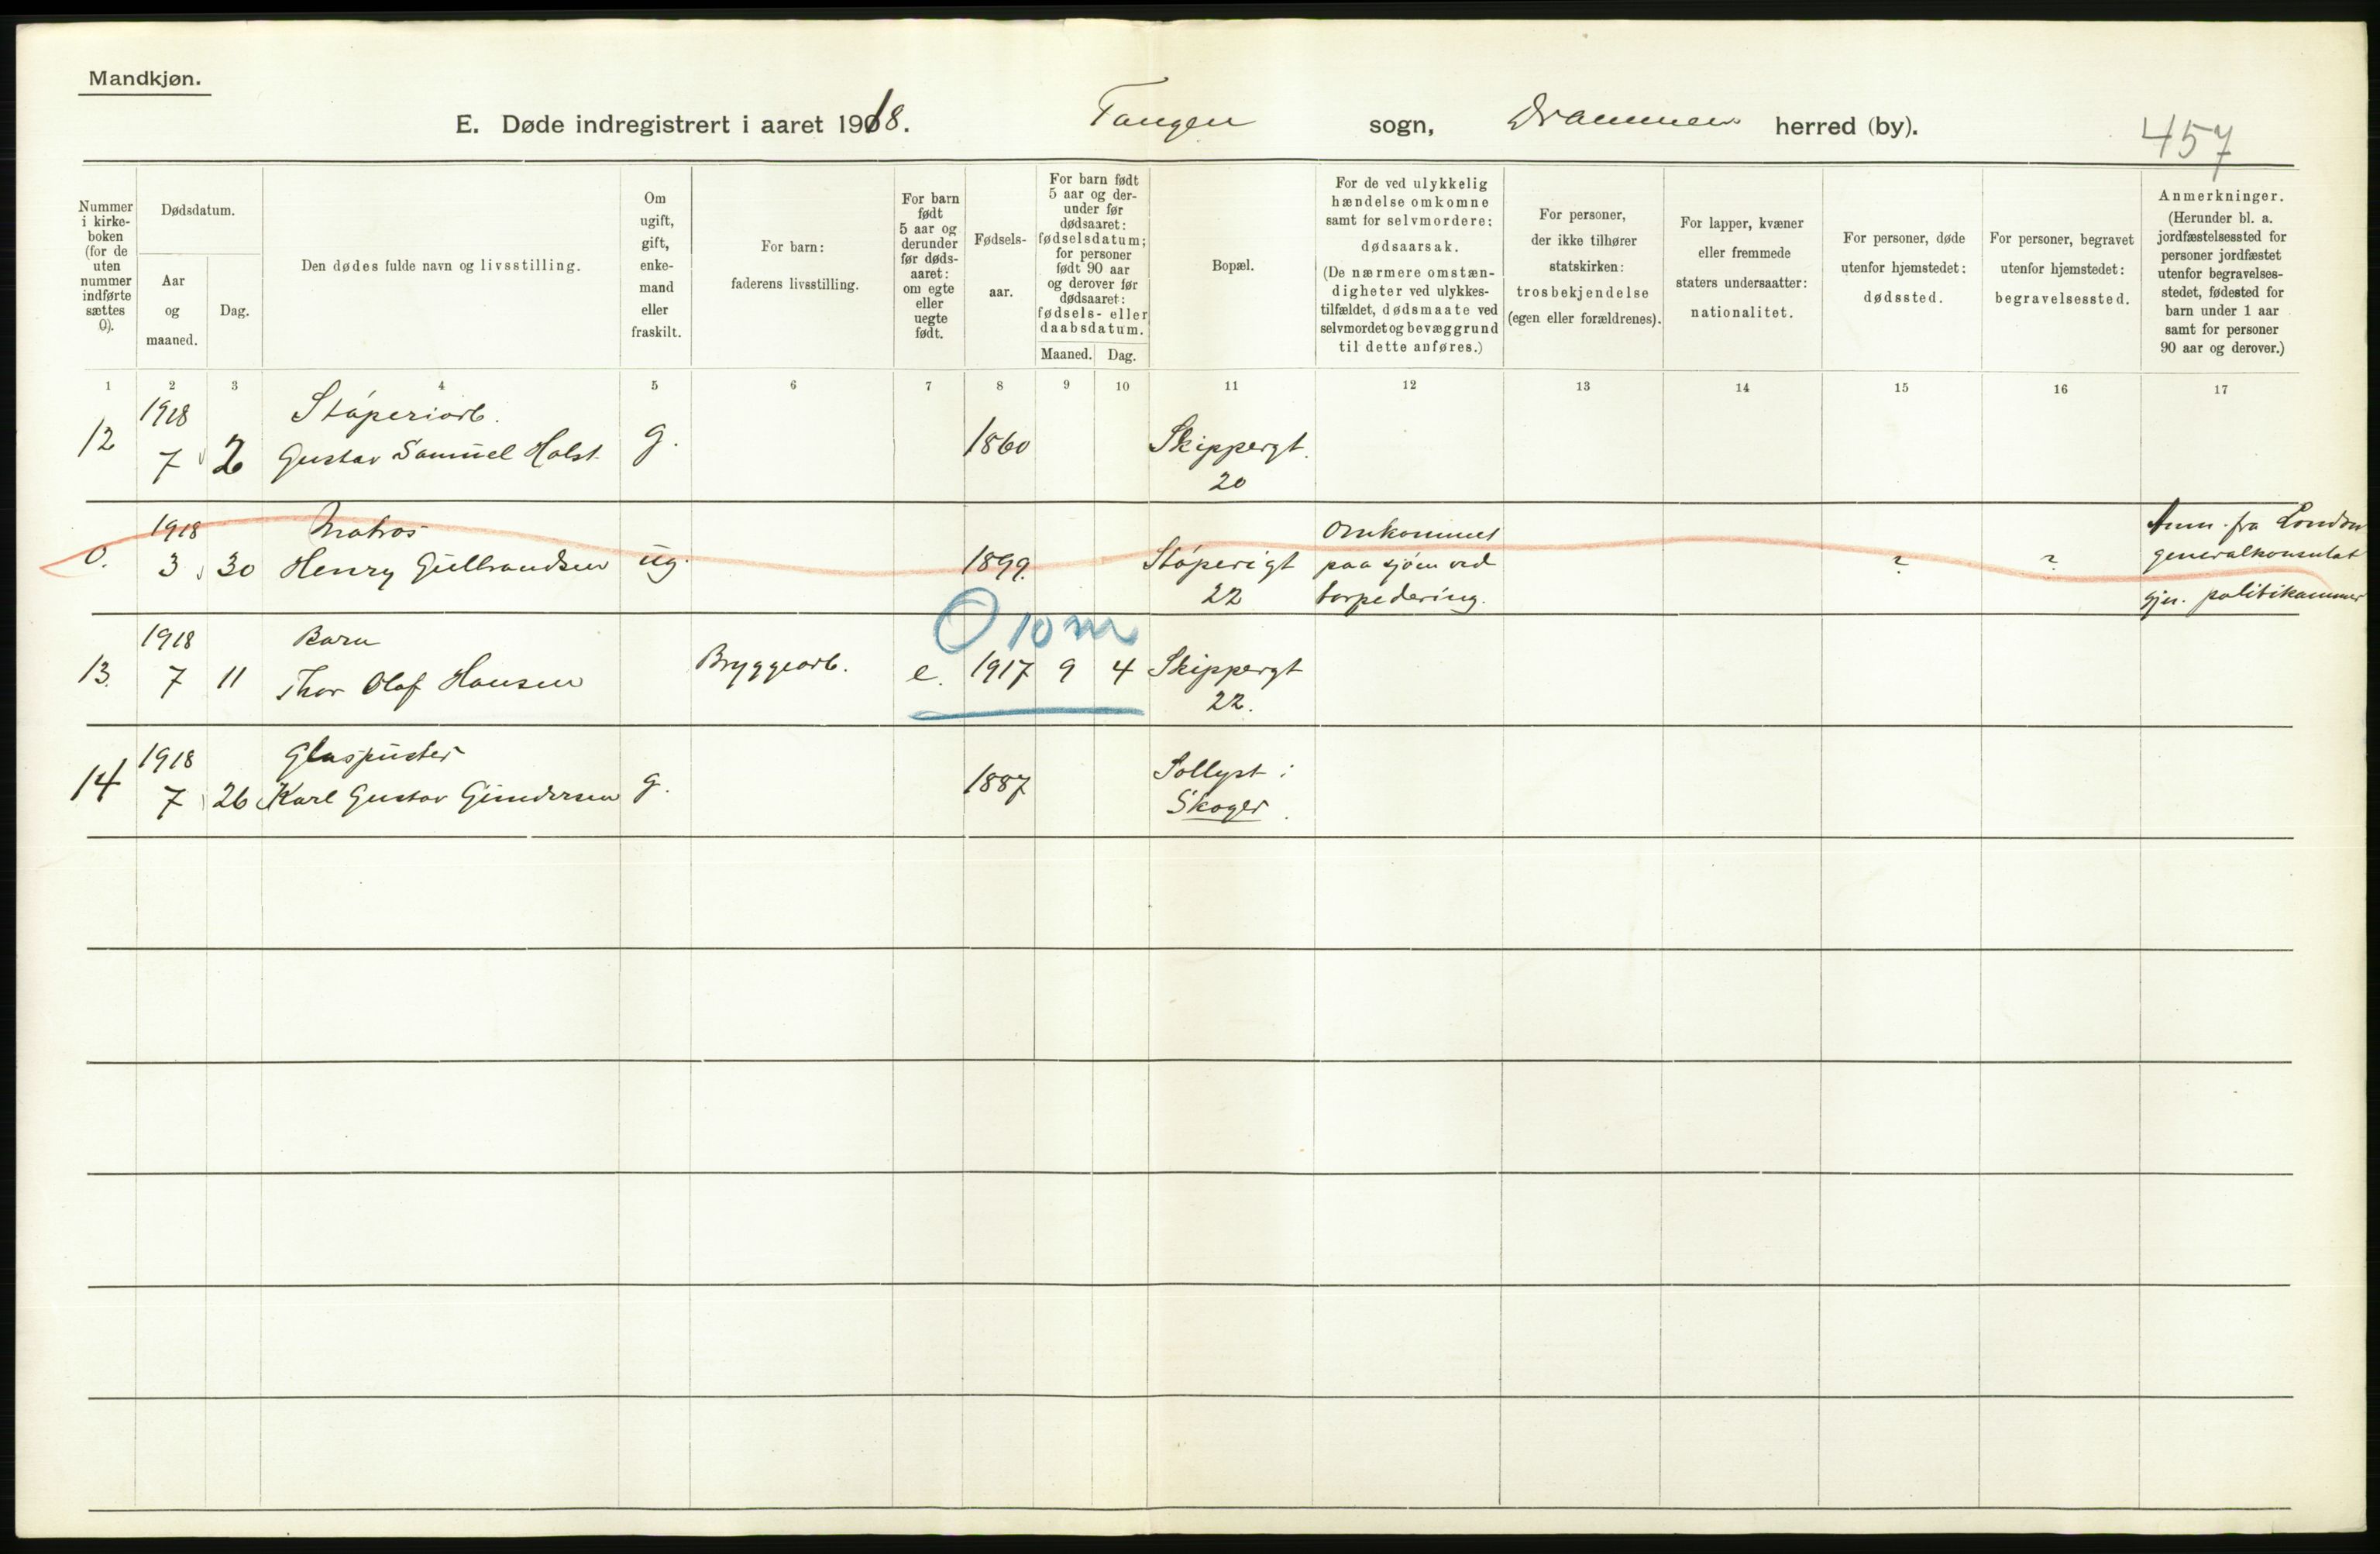 Mandkjøn.
E. Døde indregistrert i aaret 1918. Tangen sogn, Drammen herred (by).
457
Nummer i kirke- boken (for de uten nummer indførte sættes 0).
Dødsdatum.
Aar og maaned.
Dag.
Den dødes fulde navn og livsstilling.
Om ugift, gift, enke- mand eller fraskilt.
For barn: faderens livsstilling.
For barn født 5 aar og derunder før døds- aaret: om egte eller uegte født.
Fødsels- aar.
For barn født 5 aar og der- under før dødsaaret: fødselsdatum; for personer født 90 aar og derover før dødsaaret: fødsels- eller daabsdatum.
Maaned. Dag.
Bopæl.
For de ved ulykkelig hændelse omkomne samt for selvmordere: dødsaarsak. (De nærmere omstæn- digheter ved ulykkes- tilfældet, dødsmaate ved selvmordet og bevæggrund til dette anføres.)
For personer, der ikke tilhører statskirken: trosbekjendelse (egen eller forældrenes).
For lapper, kvæner eller fremmede staters undersaatter: nationalitet.
For personer, døde utenfor hjemstedet: dødssted.
For personer, begravet utenfor hjemstedet: begravelsessted.
Anmerkninger. (Herunder bl. a. jordfæstelsessted for personer jordfæstet utenfor begravelses- stedet, fødested for barn under 1 aar samt for personer 90 aar og derover.)
1 2 3 4 5 6 7 8 9 10 11 12 13 14 15 16 17
1918 Støperiarb.
12 7 2 Gustav Samuel Holst g. 1860 Skippergt.
20
1918 Matros Omkommet Anm. fra London
0. 3 30 Henry Gulbrandsen ug. 1899. Støperigt paa sjøen ved ? ? generalkonsulat
22 torpedering. gjn. politikammer
O 10 m
1918 Barn
13. 7 11 Thor Olaf Hansen Bryggearb. e. 1917 9 4 Skippergt
22.
1918 Glaspuster Sollyst i
14 7 26 Karl Gustav Gundersen g. 1887 Skoger.